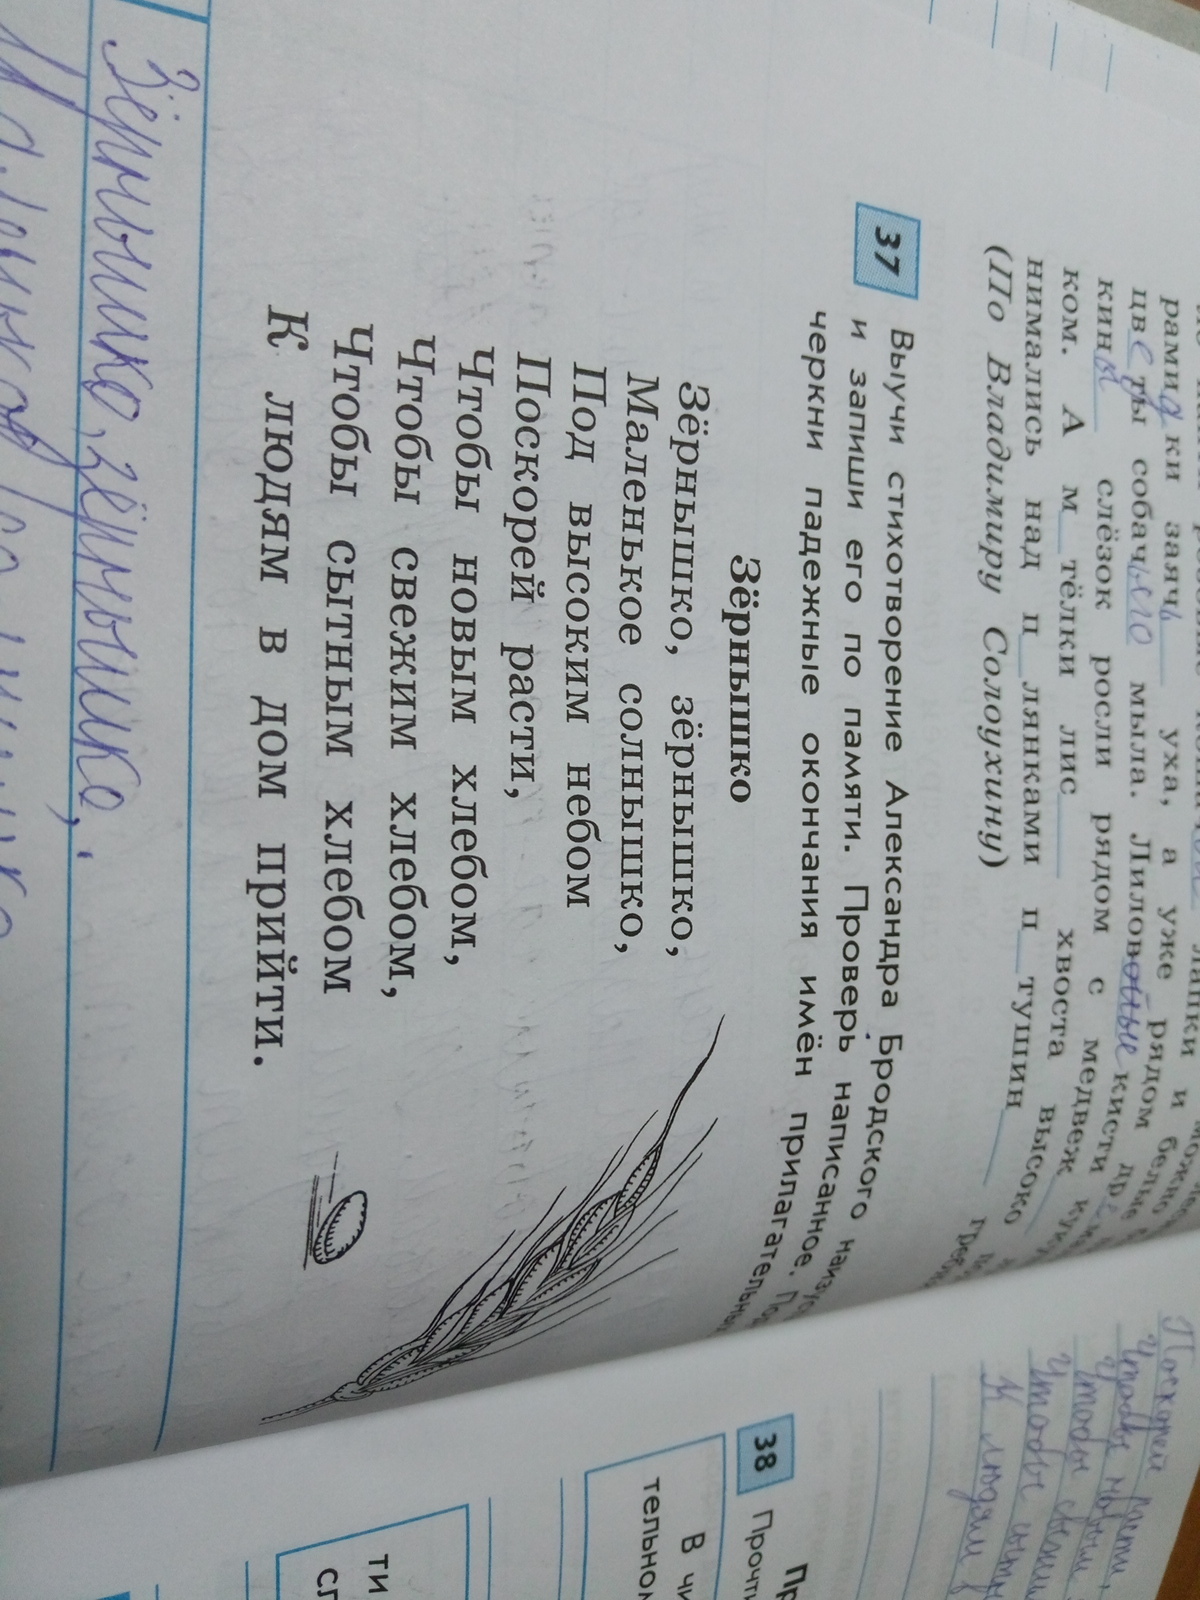 рамидки заячь уха, а уже рядом белые
цветы собачьего мыла. Лиловойные кисти
кины слёзок росли рядом с медвеж
ком. А м_тёлки лис хвоста высоко
нимались над п_лянками п_тушин
(По Владимиру Солоухину)
37 Выучи стихотворение Александра Бродского наизусть
и запиши его по памяти. Проверь написанное.
черкни падежные окончания имён прилагательных
Зёрнышко
Зёрнышко, зёрнышко,
Маленькое солнышко,
Под высоким небом
Поскорей расти,
Чтобы новым хлебом,
Чтобы свежим хлебом,
Чтобы сытным хлебом
К людям в дом прийти.
Зёрнышко, зёрнышко,
Маленькое солнышко
Поскорей расти,
Чтобы новым
Чтобы свежим
Чтобы сытн
К людям в
38 Прочти
В чи
тельном
ти
сл